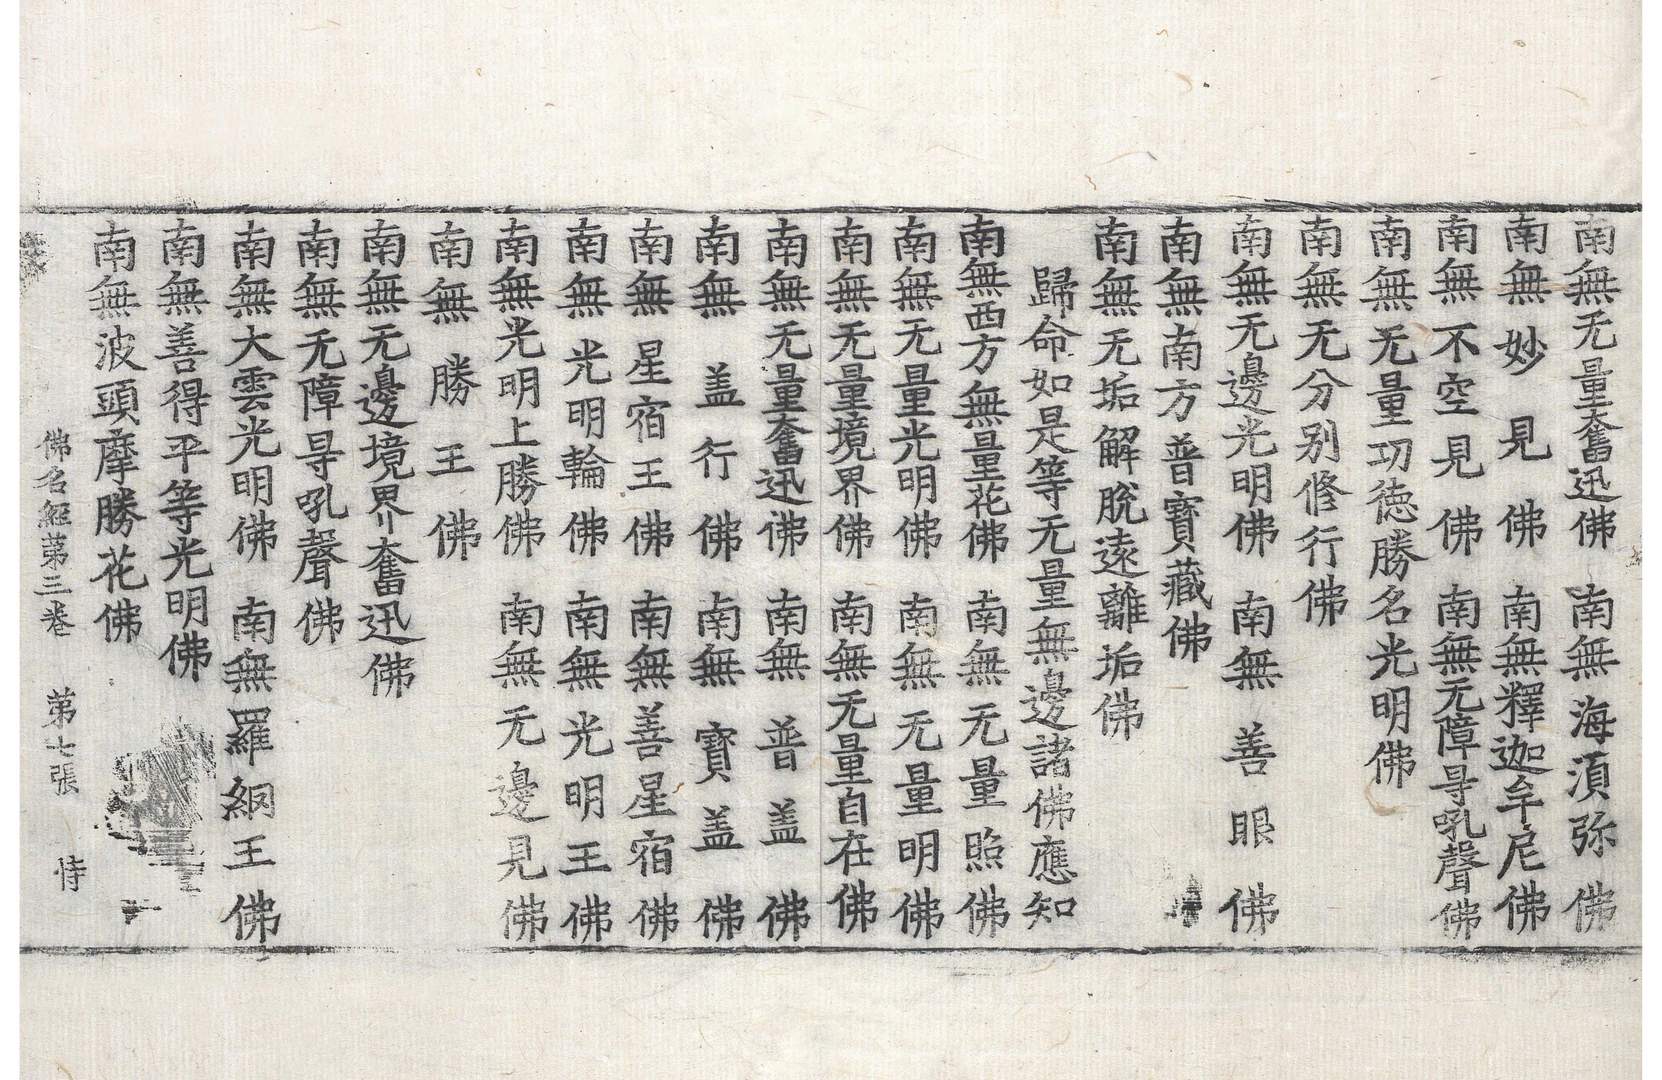 南無无量奮迅佛 南無海湏弥佛
南無妙見佛 南無釋迦牟尼佛
南無不空見佛 南無无障㝵吼聲佛
南無无量功徳勝名光明佛
南無无分别修行佛
南無无邊光明佛 南無善眼佛
南無南方普寶藏佛
南無无垢解脫遠離垢佛
歸命如是等无量無邊諸佛應知
南無西方無量花佛 南無无量照佛
南無无量光明佛 南無无量明佛
南無无量境界佛 南無无量自在佛
南無无量奮迅佛 南無普盖佛
南無盖行佛 南無寶盖佛
南無星宿王佛 南無善星宿佛
南無光明輪佛 南無光明王佛
南無光明上勝佛 南無无邊見佛
南無勝王佛
南無无邊境界奮迅佛
南無无障㝵吼聲佛
南無大雲光明佛 南無羅網王佛
南無善得平等光明佛
南無波頭摩勝花佛
佛名經苐三卷 苐七張 恃